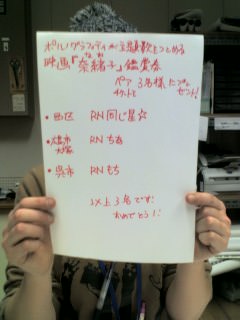 ポルノグラフィティが主題歌をつとめる
映画「奈緒子」鑑賞券
ペア 3名様に
チケット ゼント!
・西区 RN 同じ星☆
・ RN ちあ
・呉市 RN もち
以上3名です!
おめでとう!!